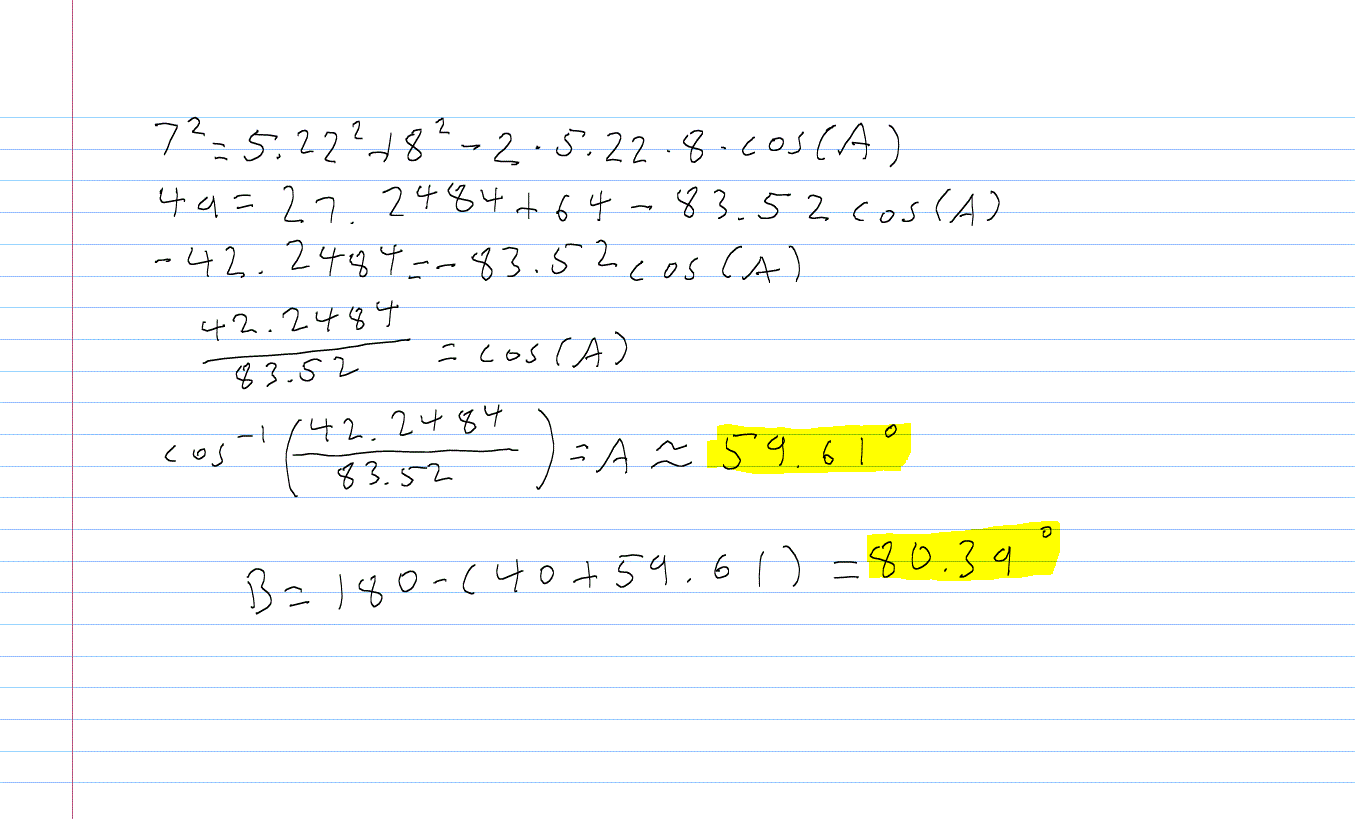 7² = 5.22² + 8² - 2 · 5.22 · 8 · cos(A)
49 = 27.2484 + 64 - 83.52 cos(A)
-42.2484 = -83.52 cos(A)
42.2484/83.52 = cos(A)
cos⁻¹(42.2484/83.52) = A ≈ 59.61°
B = 180 - (40 + 59.61) = 80.39°